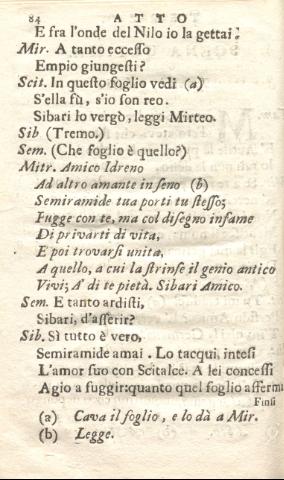 84 ATTO
E fra l'onde del Nilo io la gettai.
Mir. A tanto eccesso
Empio giungesti?
Scit. In questo foglio vedi (a)
S'ella fù, s'io son reo.
Sibari lo vergò, leggi Mirteo.
Sib (Tremo.)
Sem. (Che foglio è quello?)
Mitr. Amico Idreno
Ad altro amante in seno (b)
Semiramide tua porti tu stesso;
Fugge con te, ma col disegno infame
Di privarti di vita,
E poi trovarsi unita,
A quello, a cui la strinse il genio antico
Vivi; A' di te pietà. Sibari Amico.
Sem. E tanto ardisti,
Sibari, d'asserir?
Sib. Sì tutto è vero,
Semiramide amai. Lo tacqui, intesi
L'amor suo con Scitalce. A lei concessi
Agio a fuggir: quanto quel foglio afferma
Finsi
(a) Cava il foglio, e lo dà a Mir.
(b) Legge.